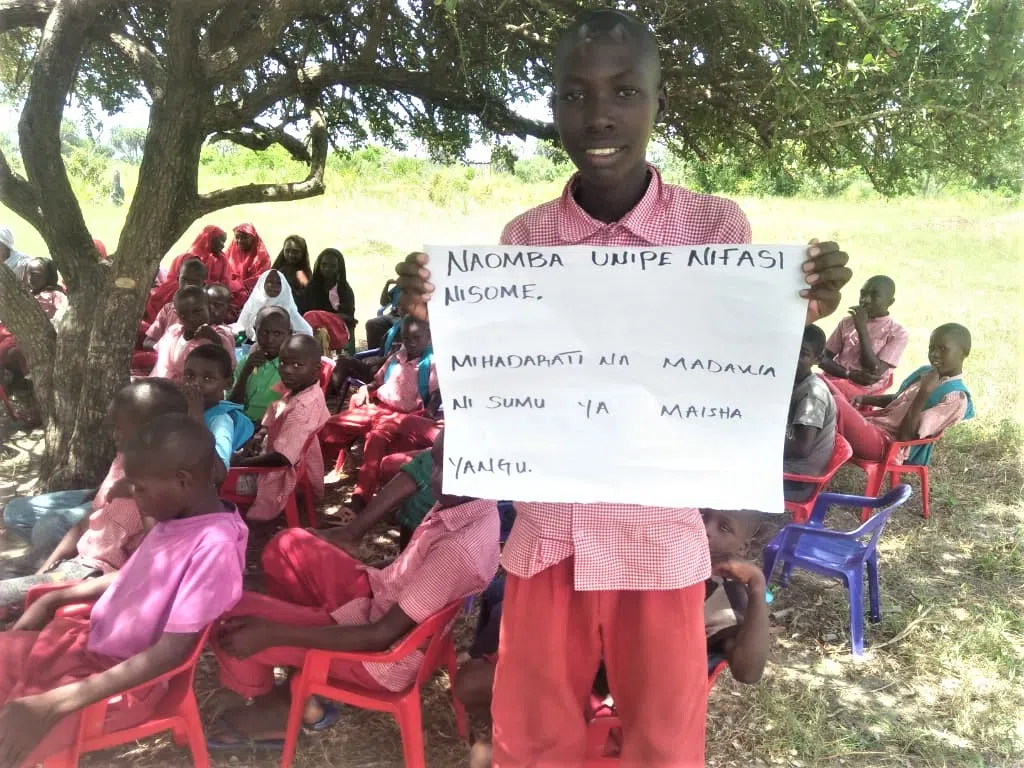 NAOMBA UNIPE NIFASI
NISOME.
MIHADARATI NA MADAWA
NI SUMU YA MAISHA
YANGU.